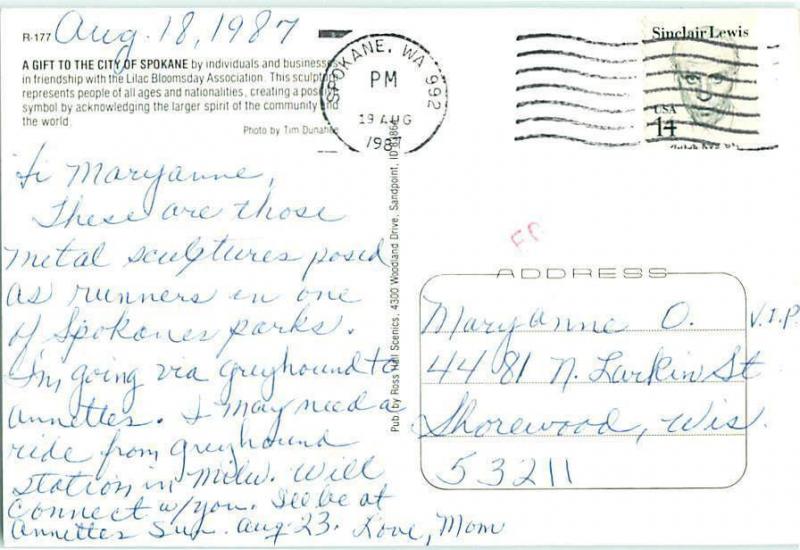 Aug. 18, 1987
R-177
A GIFT TO THE CITY OF SPOKANE by individuals and businesses
in friendship with the Lilac Bloomsday Association. This sculpture
represents people of all ages and nationalities, creating a positive
symbol by acknowledging the larger spirit of the community and
the world.
Photo by Tim Dunahie
SPOKANE, WA 992
PM
19 AUG
1987
Sinclair Lewis
USA
14
Hi Maryanne,
These are those
metal sculptures posed
as runners in one
of Spokanes parks.
I'm going via greyhound to
Annettes. I may need a
ride from greyhound
station in Milw. Will
connect w/you. I'll be at
Annettes Sun. Aug. 23. Love, Mom
Pub. by Ross Hall Scenics, 4300 Woodland Drive, Sandpoint, ID 83864
ADDRESS
Maryanne O. V.I.P.
4481 N. Larkin St
Shorewood, Wis.
53211